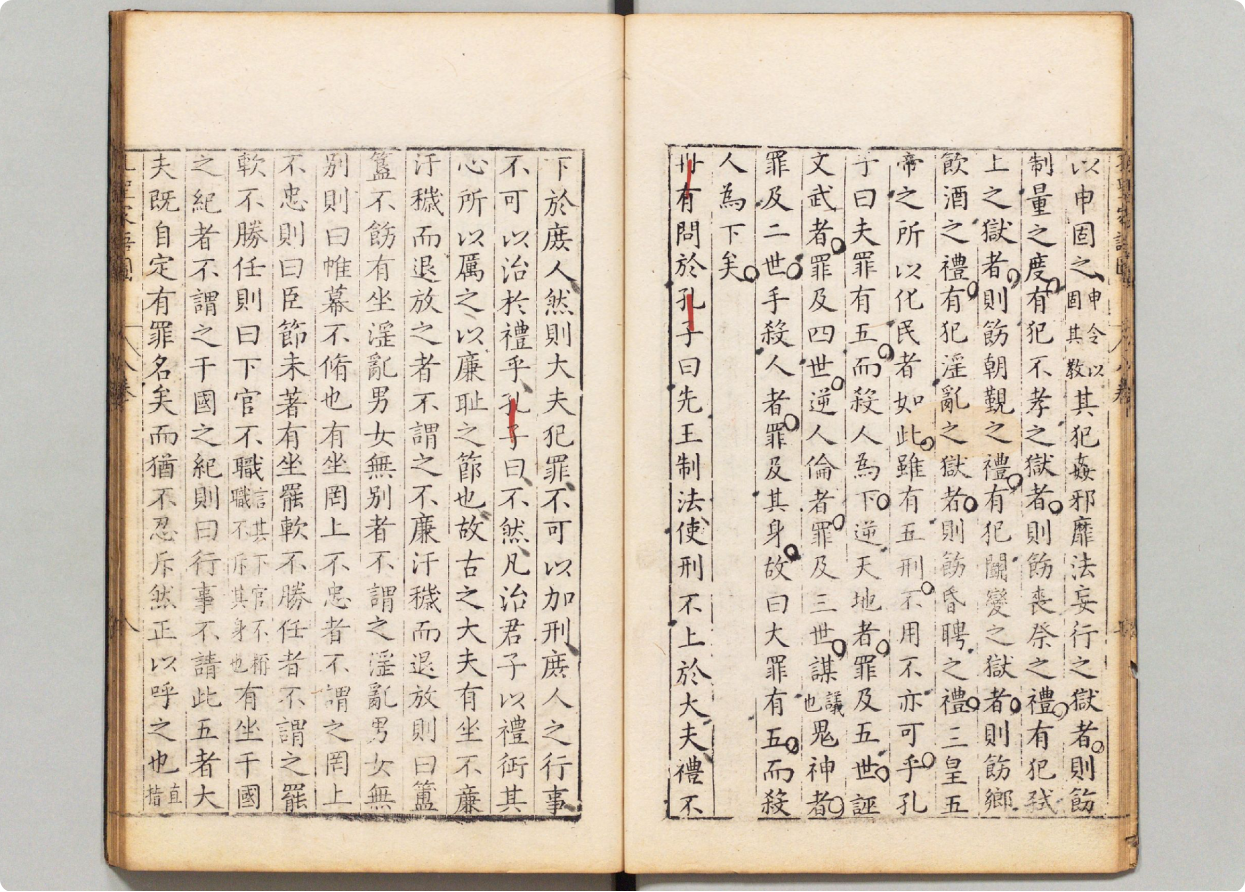 以申固之申令以固其教其犯姦邪靡法妄行之獄者則飭
制量之度有犯不孝之獄者則飭喪祭之禮有犯弒
上之獄者則飭朝覲之禮有犯鬭變之獄者則飭鄉
飲酒之禮有犯淫亂之獄者則飭昏聘之禮三皇五
帝之所以化民者如此雖有五刑不用不亦可乎孔
子曰夫罪有五而殺人為下逆天地者罪及五世誣
文武者罪及四世逆人倫者罪及三世謀議也鬼神者
罪及二世手殺人者罪及其身故曰大罪有五而殺
人為下矣
冉有問於孔子曰先王制法使刑不上於大夫禮不
下於庶人然則大夫犯罪不可以加刑庶人之行事
不可以治於禮乎孔子曰不然凡治君子以禮銜其
心所以厲之以廉恥之節也故古之大夫有坐不廉
汙穢而退放之者不謂之不廉汙穢而退放則曰簠
簋不飭有坐淫亂男女無別者不謂之淫亂男女無
別則曰帷幕不脩也有坐罔上不忠者不謂之罔上
不忠則曰臣節未著有坐罷軟不勝任者不謂之罷
軟不勝任則曰下官不職言其下官不稱職不斥其身也有坐干國
之紀者不謂之干國之紀則曰行事不請此五者大
夫既自定有罪名矣而猶不忍斥然正以呼之也直指